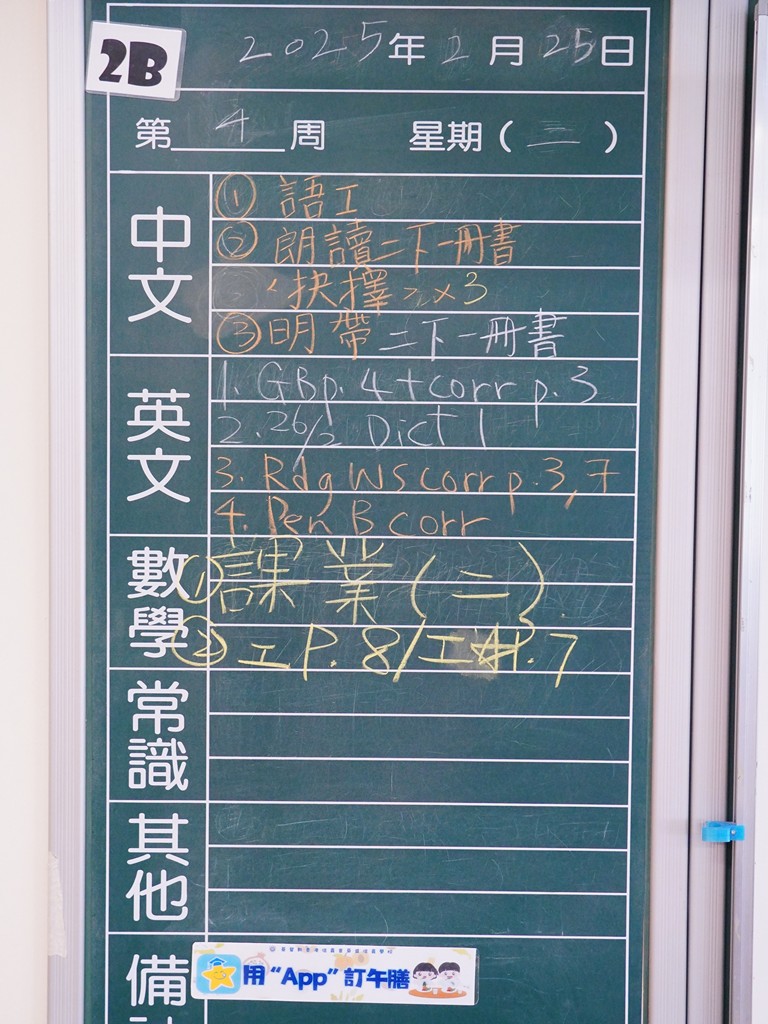 2B
2025年2月25日
第4周 星期(二)
中文
① 語工
② 朗讀二下一冊書
、抉擇 > x3
③ 明帶二下一冊書
英文
1. GB p. 4 + corr p. 3
2. 26/2 Dict 1
3. Rdg WS corr p. 3, 7
4. Pen B corr
數學
① 課業(二)
② 工P. 8/工P. 7
常識
其他
備
用“App”訂午膳